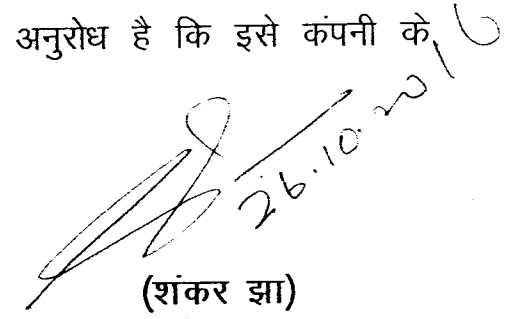 अनुरोध है कि इसे कंपनी के
26.10.2016
(शंकर झा)